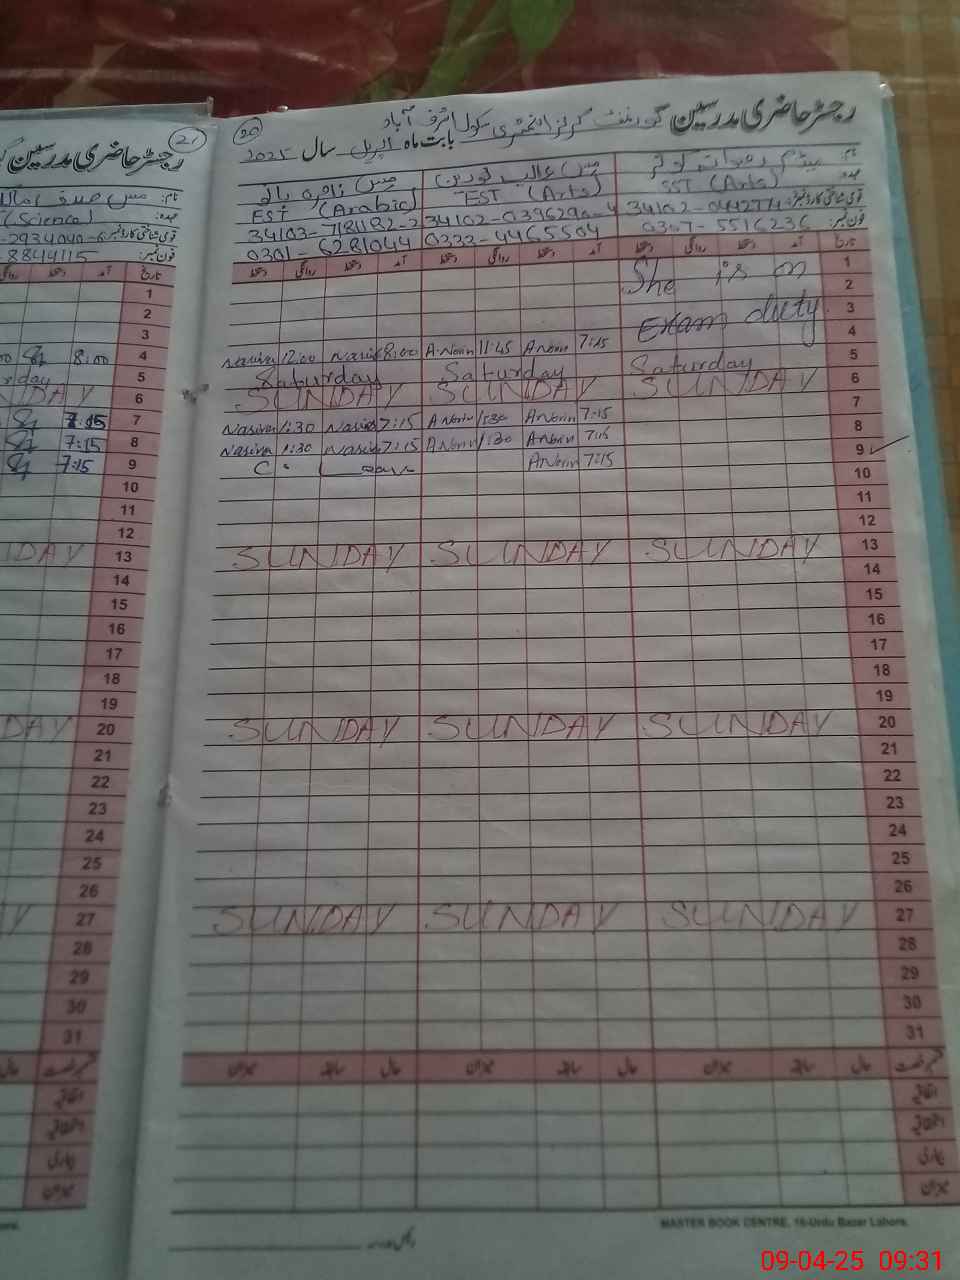 20
رجسٹر حاضری مدرسین گورنمنٹ گرلز ایلیمنٹری سکول اشرف آباد
بابت ماہ اپریل سال 2025
نام:
عہدہ: SST (Arts)
EST (Arts)
EST (Arabic)
قومی شناختی کارڈ نمبر:
34103-7181182-2
فون نمبر: 0307-5516236
0333-4465504
0301-6281044
تاریخ آمد دستخط روانگی دستخط آمد دستخط روانگی دستخط آمد دستخط روانگی دستخط
1 She is on
2
3 Exam duty
4 7:15 A.Norin 11:45 A.Norin 8:00 Nasira 12:00 Nasira
5 Saturday Saturday Saturday
6 SUNDAY SUNDAY SUNDAY
7 7:15 A.Norin 1:30 A.Norin 7:15 Nasira 1:30 Nasira
8 7:15 A.Norin 1:30 A.Norin 7:15 Nasira 1:30 Nasira
9 7:15 A.Norin
10
11
12
13 SUNDAY SUNDAY SUNDAY
14
15
16
17
18
19
20 SUNDAY SUNDAY SUNDAY
21
22
23
24
25
26
27 SUNDAY SUNDAY SUNDAY
28
29
30
31
میزان سابقہ حال میزان سابقہ حال میزان سابقہ حال
اتفاقیہ
استحقاقیہ
بیماری
میزان
MASTER BOOK CENTRE, 16-Urdu Bazar Lahore.
21
رجسٹر حاضری مدرسین
نام:
عہدہ: (Science)
قومی شناختی کارڈ نمبر: 2934040-6
فون نمبر: 8844115
تاریخ آمد دستخط روانگی
1
2
3
4 8:00
5 rday
6 NDAY
7 7:15
8 7:15
9 7:15
10
11
12
13 NDAY
14
15
16
17
18
19
20 DAY
21
22
23
24
25
26
27 Y
28
29
30
31
حال
اتفاقیہ
استحقاقیہ
بیماری
میزان
09-04-25 09:31